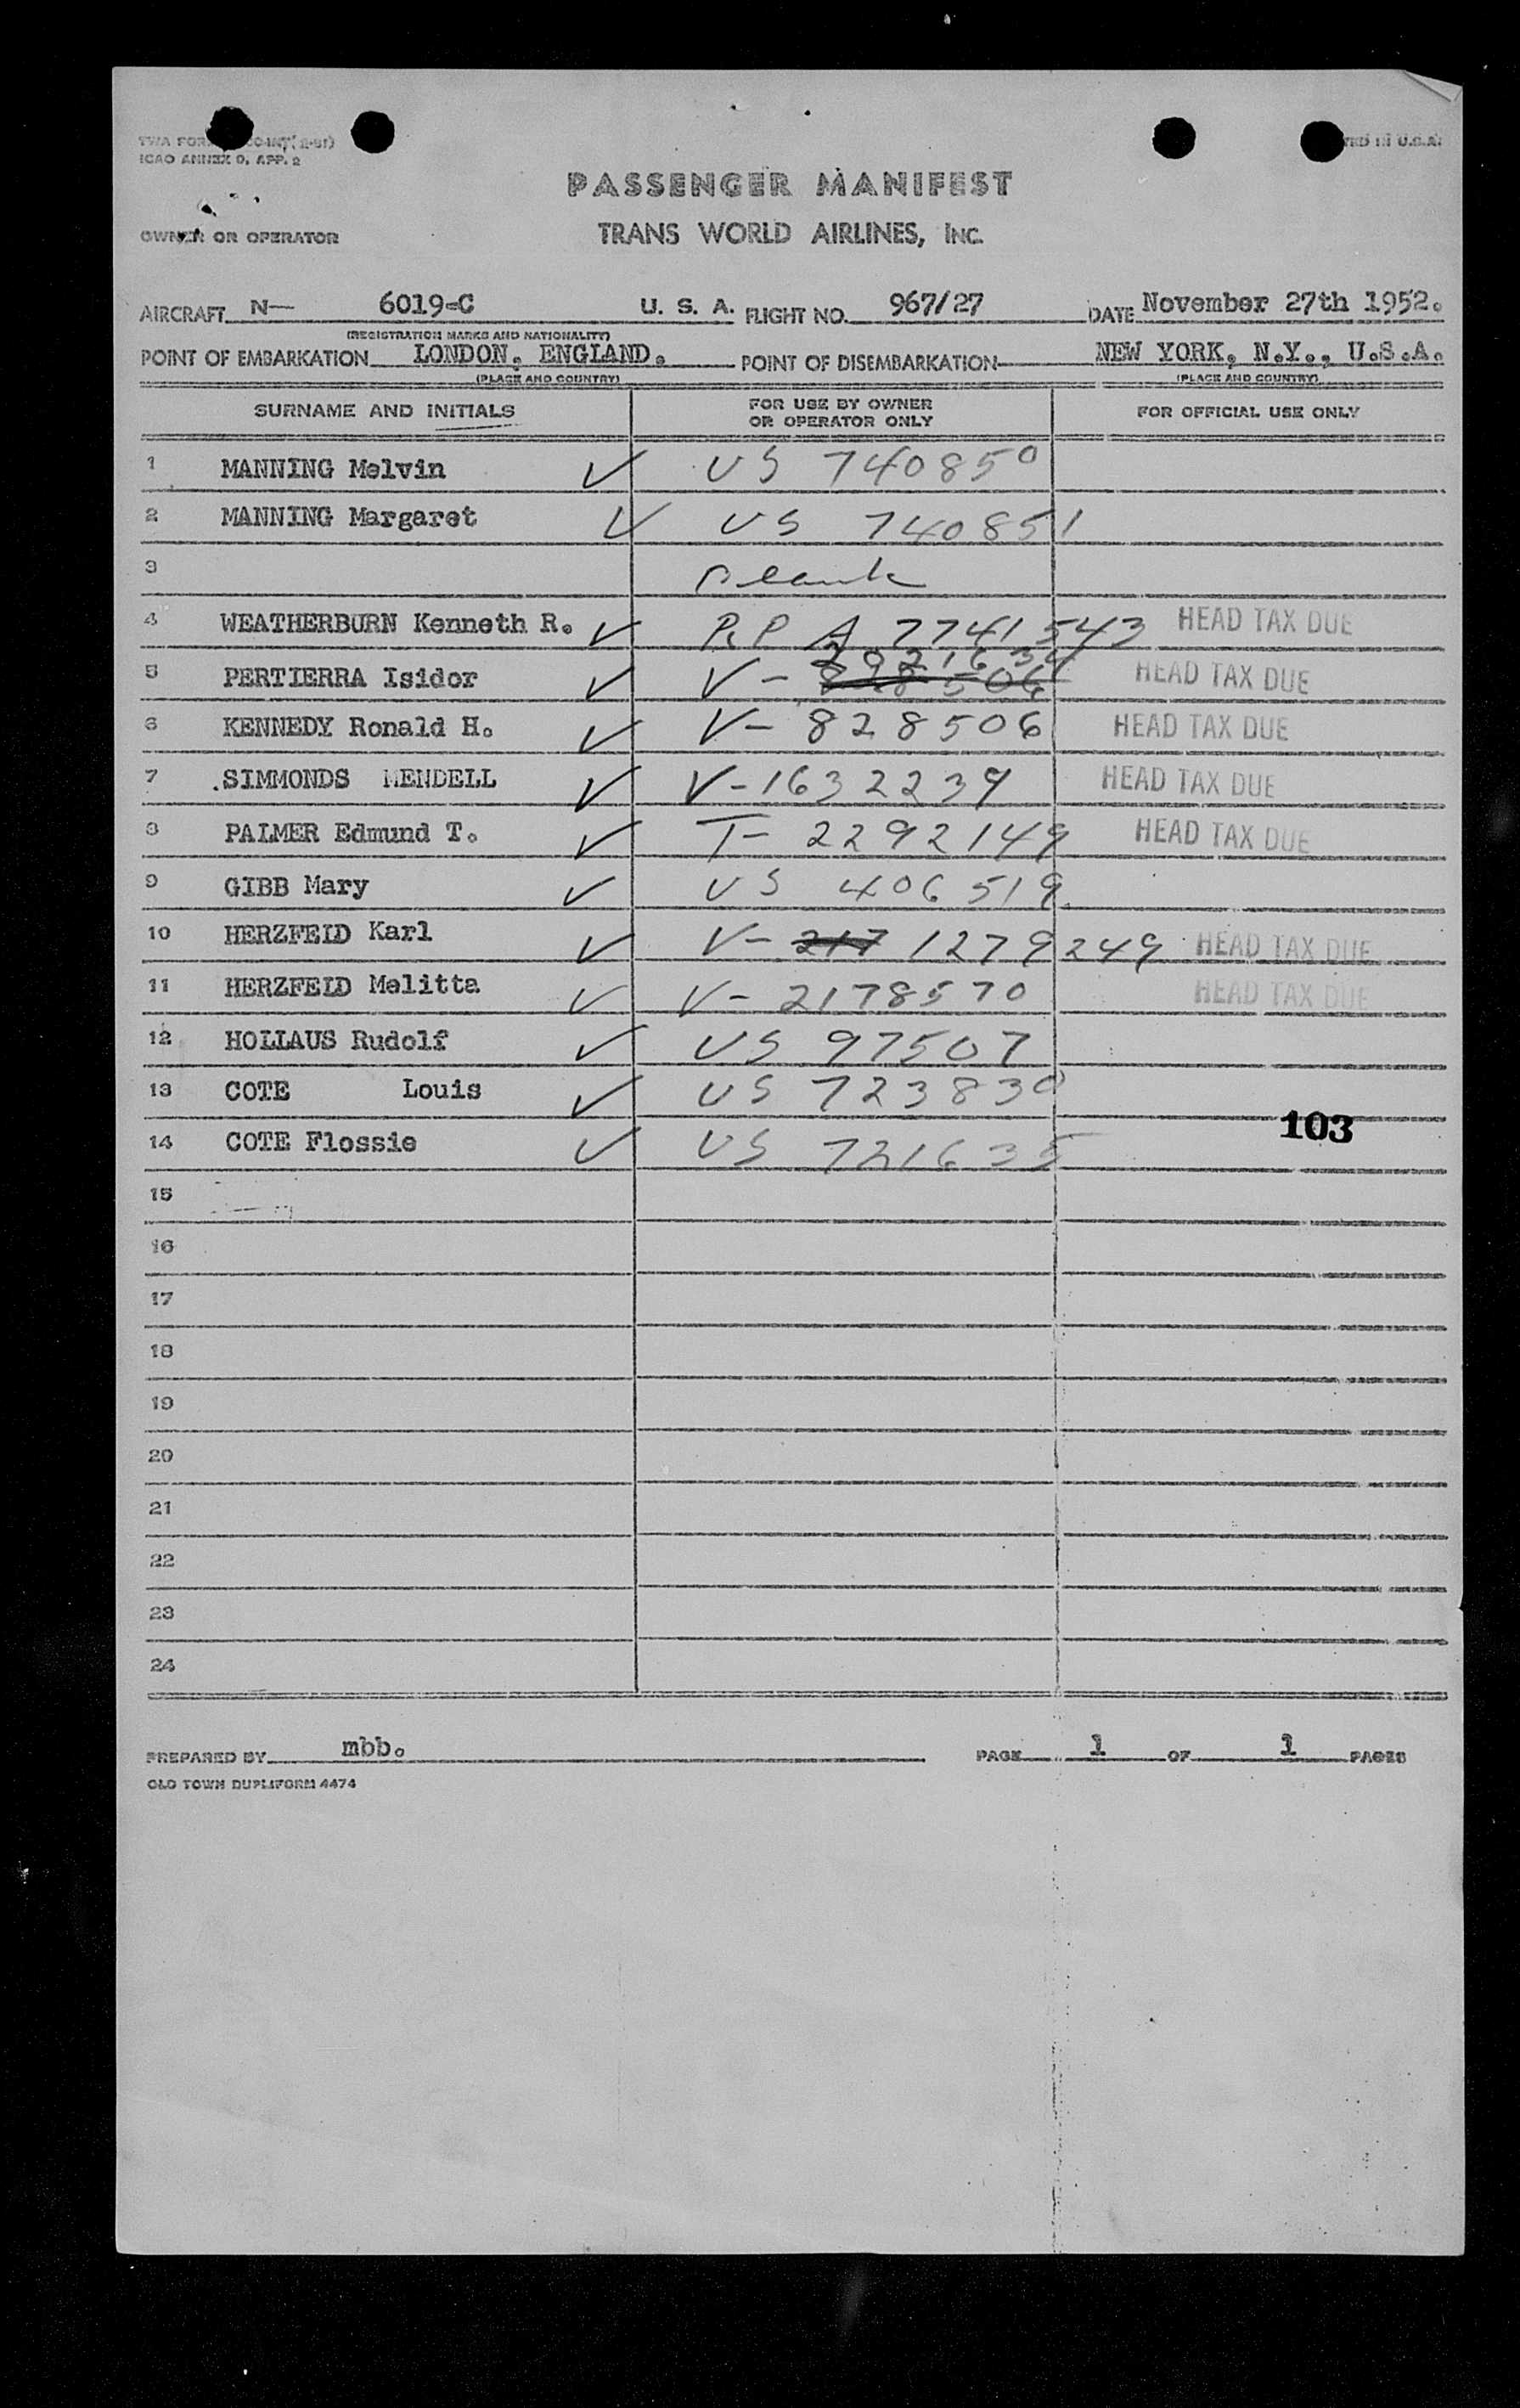 ICAO ANNEX 9, APP. 2
U.S.A.
PASSENGER MANIFEST
OWNER OR OPERATOR
TRANS WORLD AIRLINES, INC.
AIRCRAFT N— 6019-C U. S. A. FLIGHT NO. 967/27 DATE November 27th 1952.
(REGISTRATION MARKS AND NATIONALITY)
POINT OF EMBARKATION LONDON, ENGLAND. POINT OF DISEMBARKATION NEW YORK, N.Y., U.S.A.
(PLACE AND COUNTRY) (PLACE AND COUNTRY)
SURNAME AND INITIALS FOR USE BY OWNER OR OPERATOR ONLY FOR OFFICIAL USE ONLY
1 MANNING Melvin ✓ US 740850
2 MANNING Margaret ✓ US 740851
3 Blank
4 WEATHERBURN Kenneth R. ✓ R.P A 7741543 HEAD TAX DUE
5 PERTIERRA Isidor ✓ V- 828506 HEAD TAX DUE
6 KENNEDY Ronald H. ✓ V- 828506 HEAD TAX DUE
7 SIMMONDS MENDELL ✓ V-1632239 HEAD TAX DUE
8 PALMER Edmund T. ✓ T- 2292149 HEAD TAX DUE
9 GIBB Mary ✓ US 406519
10 HERZFELD Karl ✓ V- 217 1279249 HEAD TAX DUE
11 HERZFELD Melitta ✓ V- 2178570 HEAD TAX DUE
12 HOLLAUS Rudolf ✓ US 97507
13 COTE Louis ✓ US 723830
103
14 COTE Flossie ✓ US 721635
15
16
17
18
19
20
21
22
23
24
PREPARED BY mbb. PAGE 1 OF 1 PAGES
OLD TOWN DUPLIFORM 4474